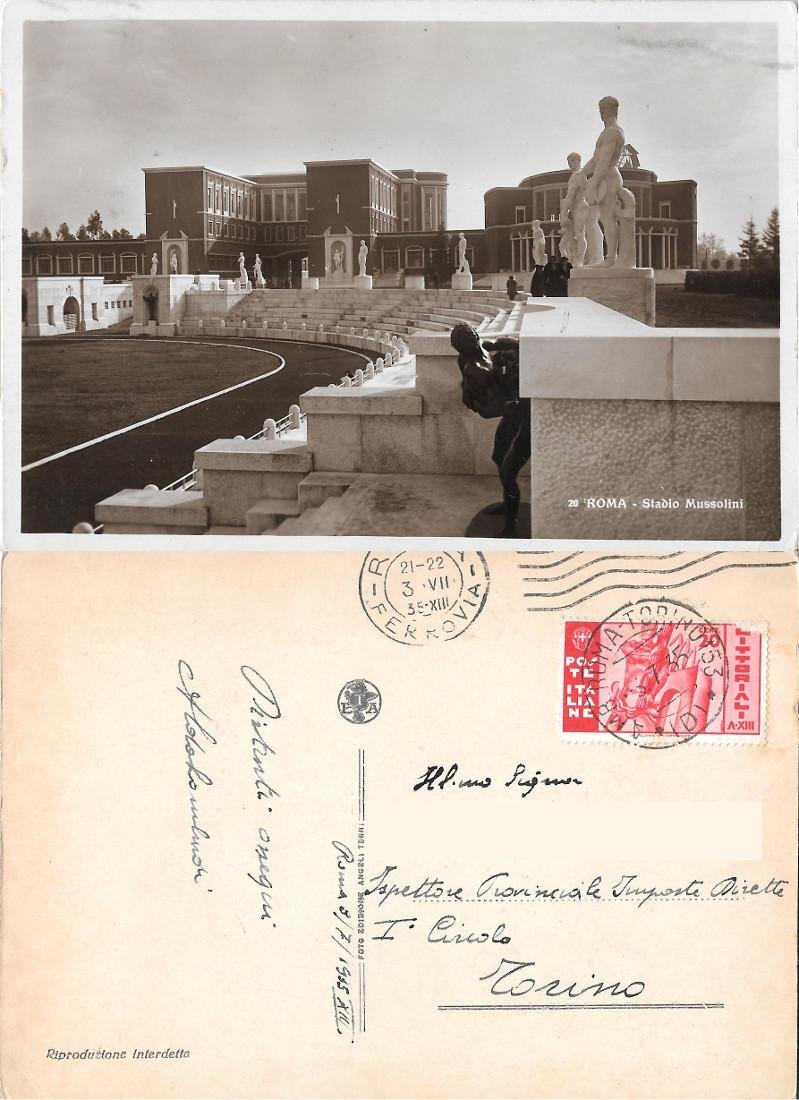 20 ROMA - Stadio Mussolini
21-22
3 · VII
35·XIII
FERROVIA
POSTE ITALIANE
LITTORIALI
A·XIII
AMB. ROMA-TORINO 53
3.7.35
(D)
E I A
Ill.mo Signor
Ispettore Provinciale Imposte Dirette
I° Circolo
Torino
Distinti ossequi
Roma 3/7/1935 XIII
FOTO EDIZIONE ANGELI TERNI
Riproduzione interdetta